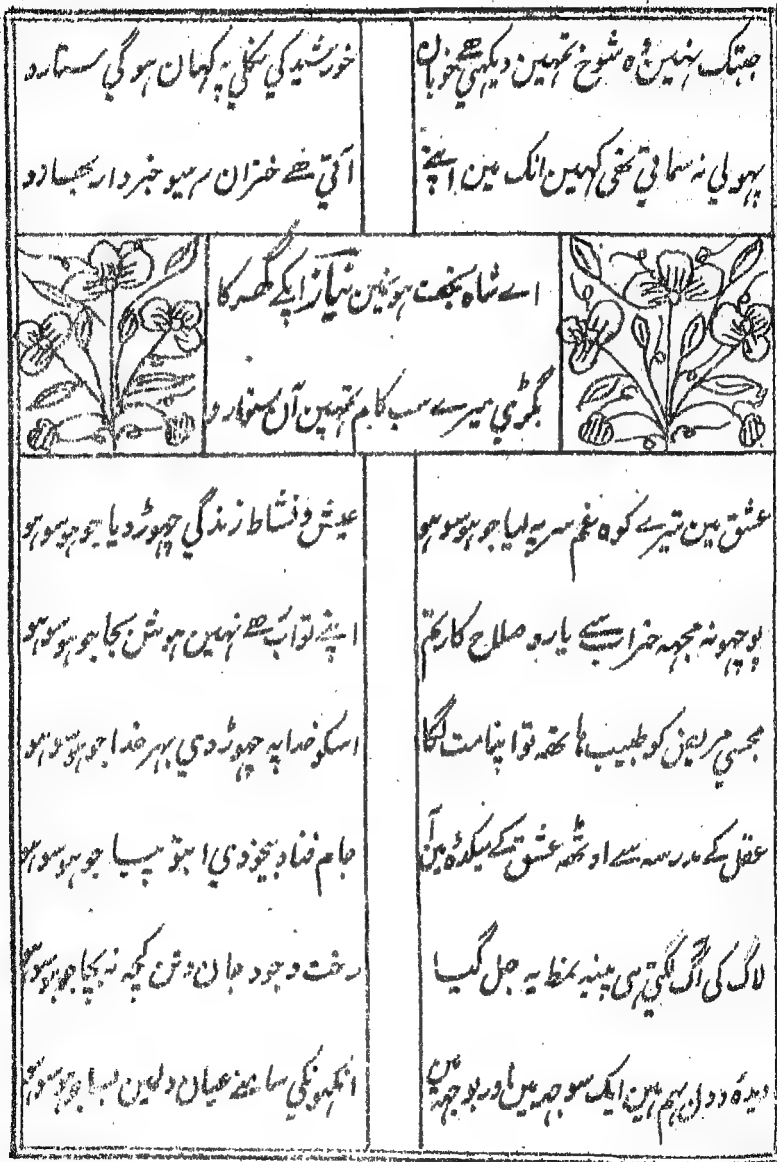 جبتک نہین وہ شوخ تمہین دیکھی ھے خوبان
خورشید کی نکلی پہ کہان ہوگی ستارو
پہولی نہ سماتی تھی کہین انک مین اپنے
آتی ھے خزان رہیو خبردار بہارو
اے شاہ نجف ہونمین نیاز آپکے گھر کا
بگڑی میرے سب کام تمہین آن سنوارو
عشق مین تیرے کوہ غم سر پہ لیا جو ہو سو ہو
عیش و نشاط زندگی چہوڑ دیا جو ہو سو ہو
پوچہو نہ مجہہ خراب سے یارو صلاح کار تم
اپنے تو اب ھے نہین ہوش بجا جو ہو سو ہو
مجسی مریض کو طبیب ہاتھہ تو اپنا مت لگا
اسکو خدا پہ چہوڑ دی بہر خدا جو ہو سو ہو
عقل کے مدرسہ سے اوٹھہ عشق کے میکدہ مین آ
جام فنا و بیخودی ابتو پیا جو ہو سو ہو
لاگ کی آگ لگتی ہی پنبہ نمط یہ جل گیا
رخت وجود جان و تن کچہ نہ بچا جو ہو سو ہو
دیدہ و دل بہم ہین ایک سوجہہ مین اور بوجہہ مین
انکہونکی سامنے عیان دلمین بسا جو ہو سو ہو